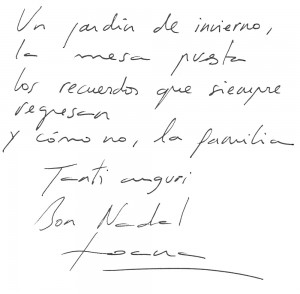 Un jardín de invierno,
la mesa puesta
los recuerdos que siempre
regresan
y cómo no, la familia
Tanti auguri
Bon Nadal
Joana